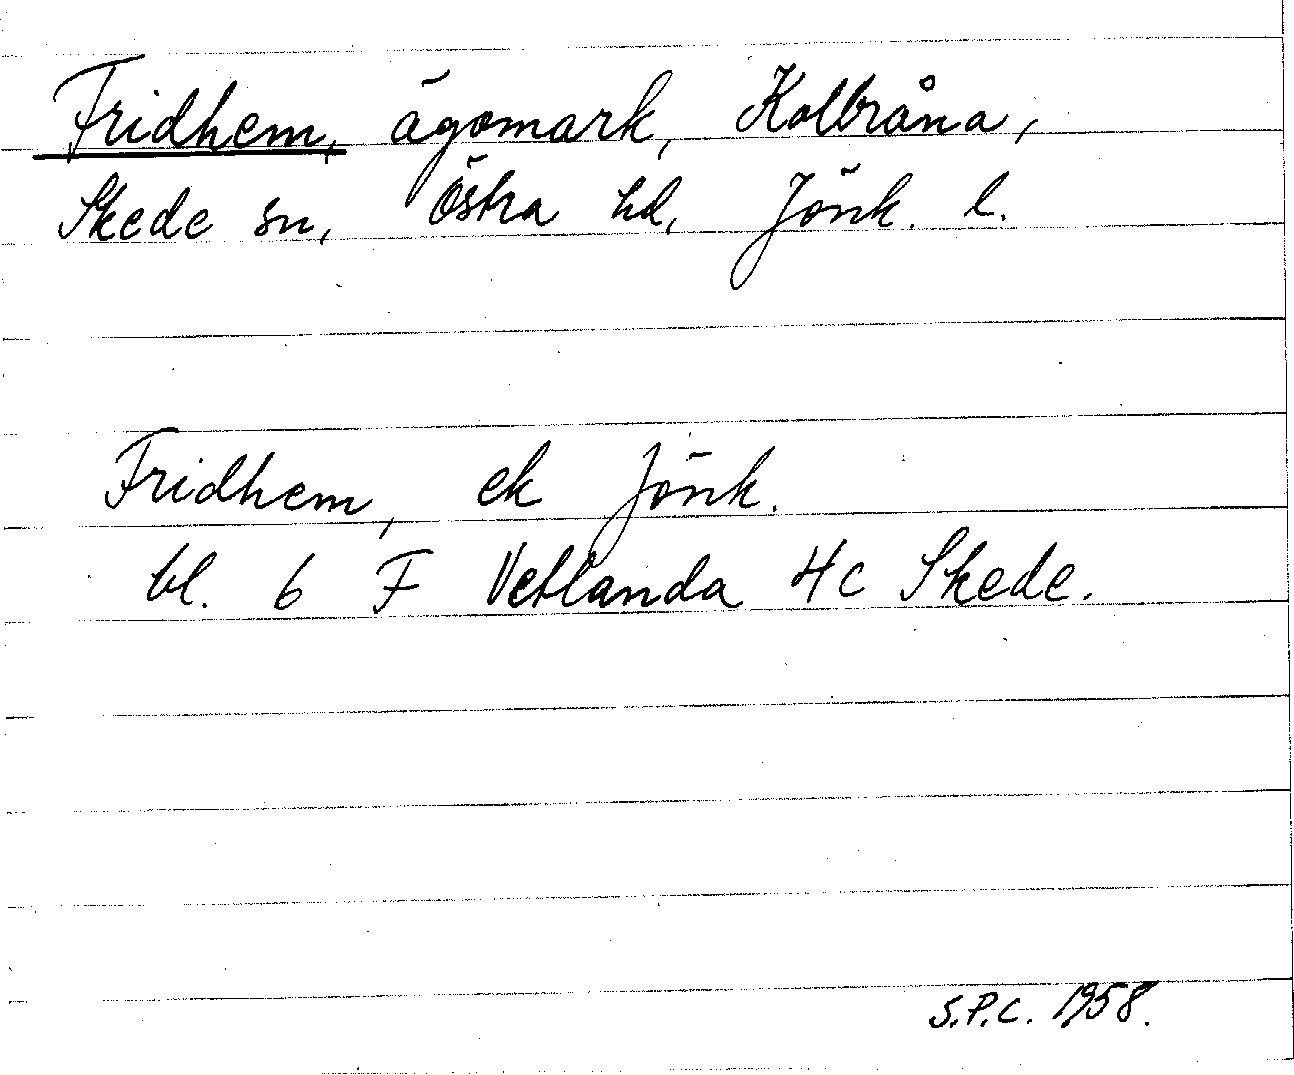 Fridhem, ägomark, Kolbråna,
Skede sn, Östra hd, Jönk. l.
Fridhem, ek Jönk.
bl. 6 F Vetlanda 4c Skede.
S.P.C. 1958.